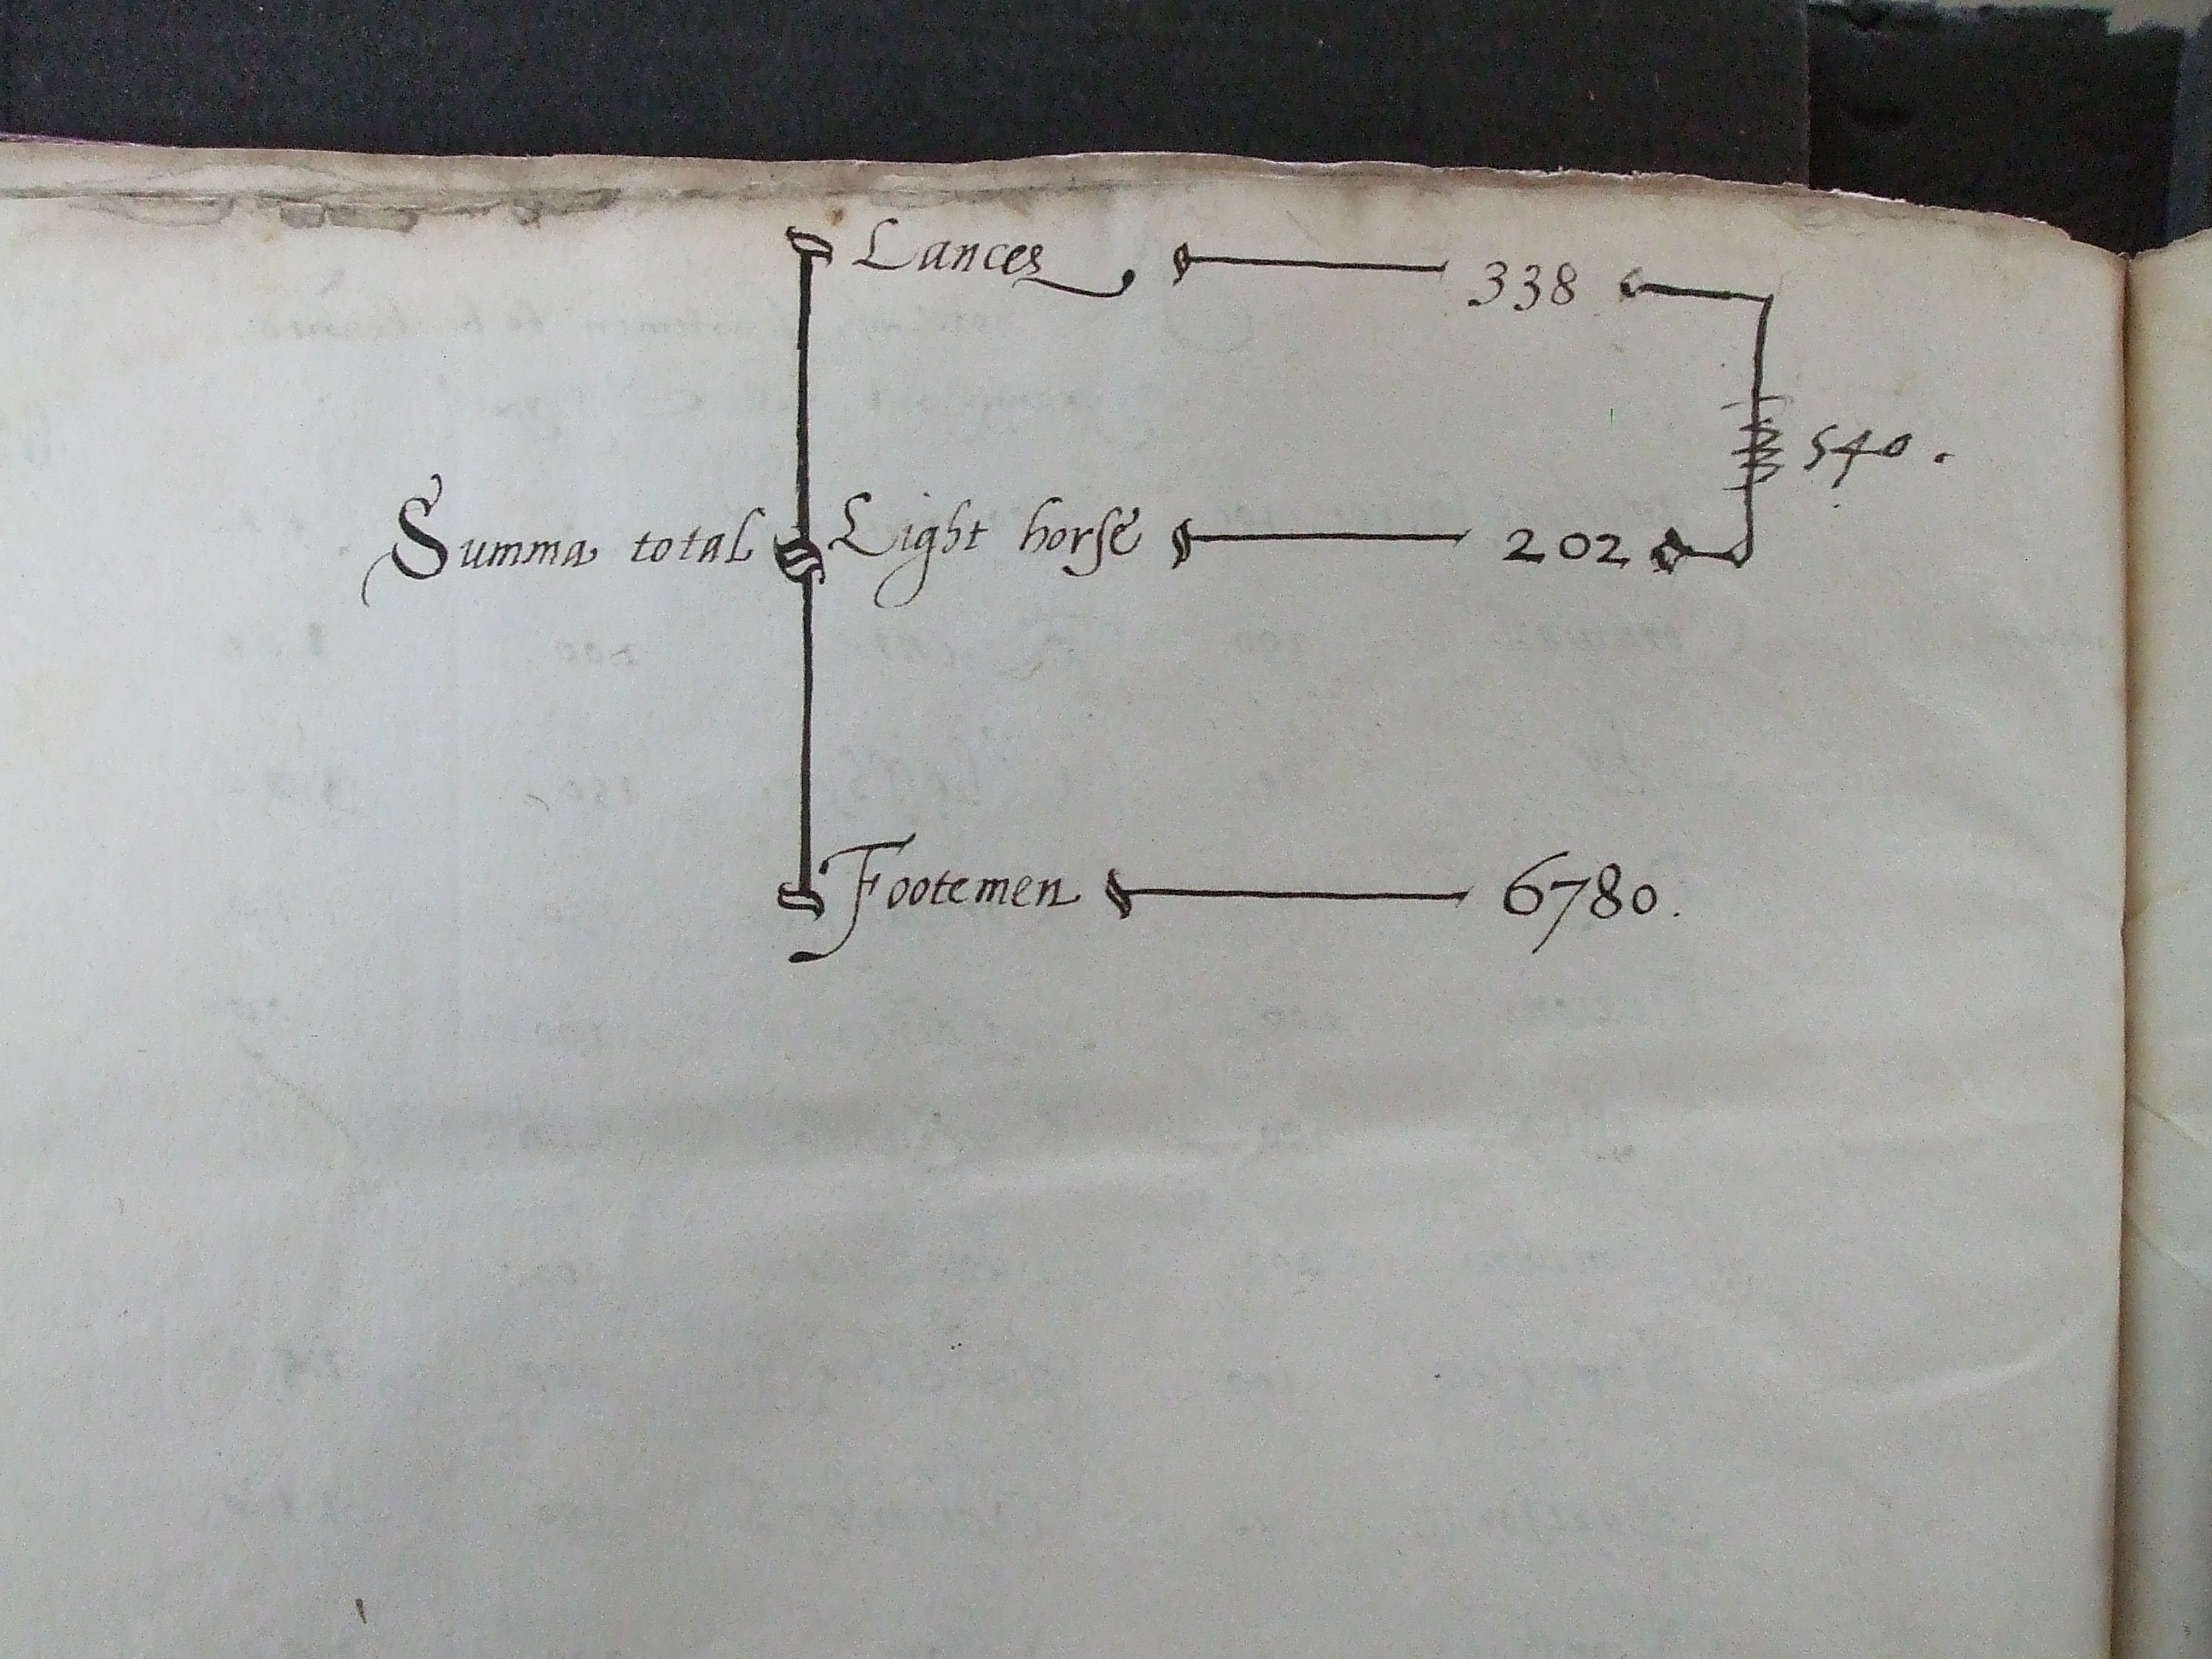 Lances 338
540.
Summa total Light horse 202
Footemen 6780.